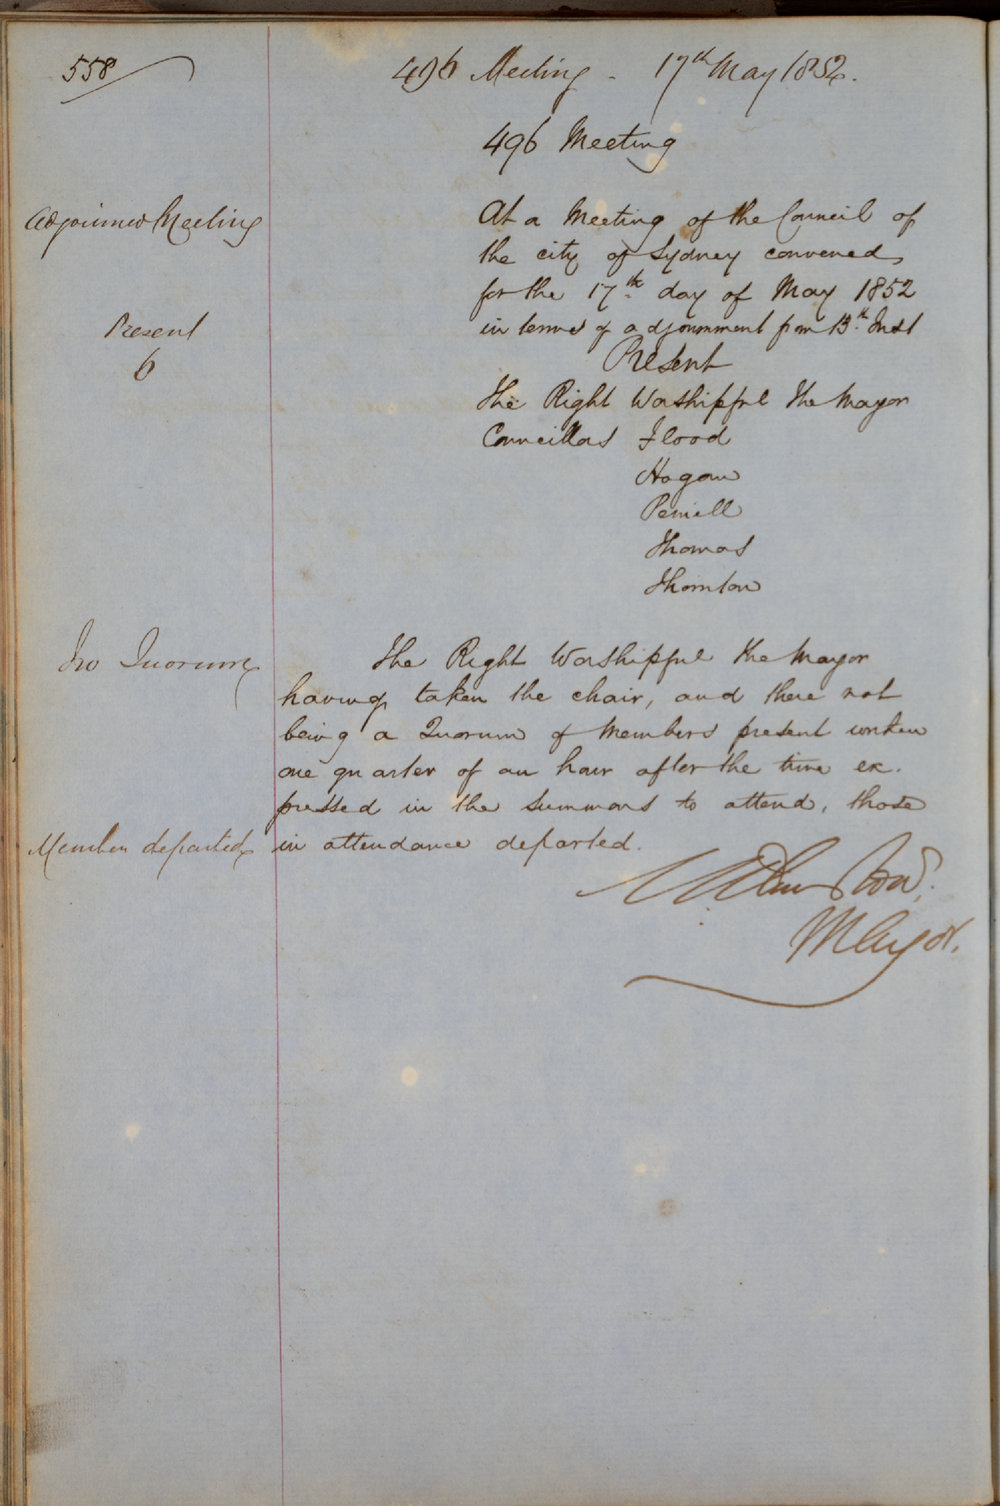 558
496 Meeting - 17th May 1852.
496 Meeting
Adjourned Meeting
At a Meeting of the Council of
the city of Sydney convened
for the 17th day of May 1852
in terms of adjournment from 13th Inst
Present
6
Present
The Right Worshipful The Mayor
Councillors Flood
Hogan
Thomas
Thornton
No Quorum
The Right Worshipful the Mayor
having taken the chair, and there not
being a Quorum of Members present within
one quarter of an hour after the time ex.
pressed in the summons to attend, those
Members departed
in attendance departed.
Mayor.